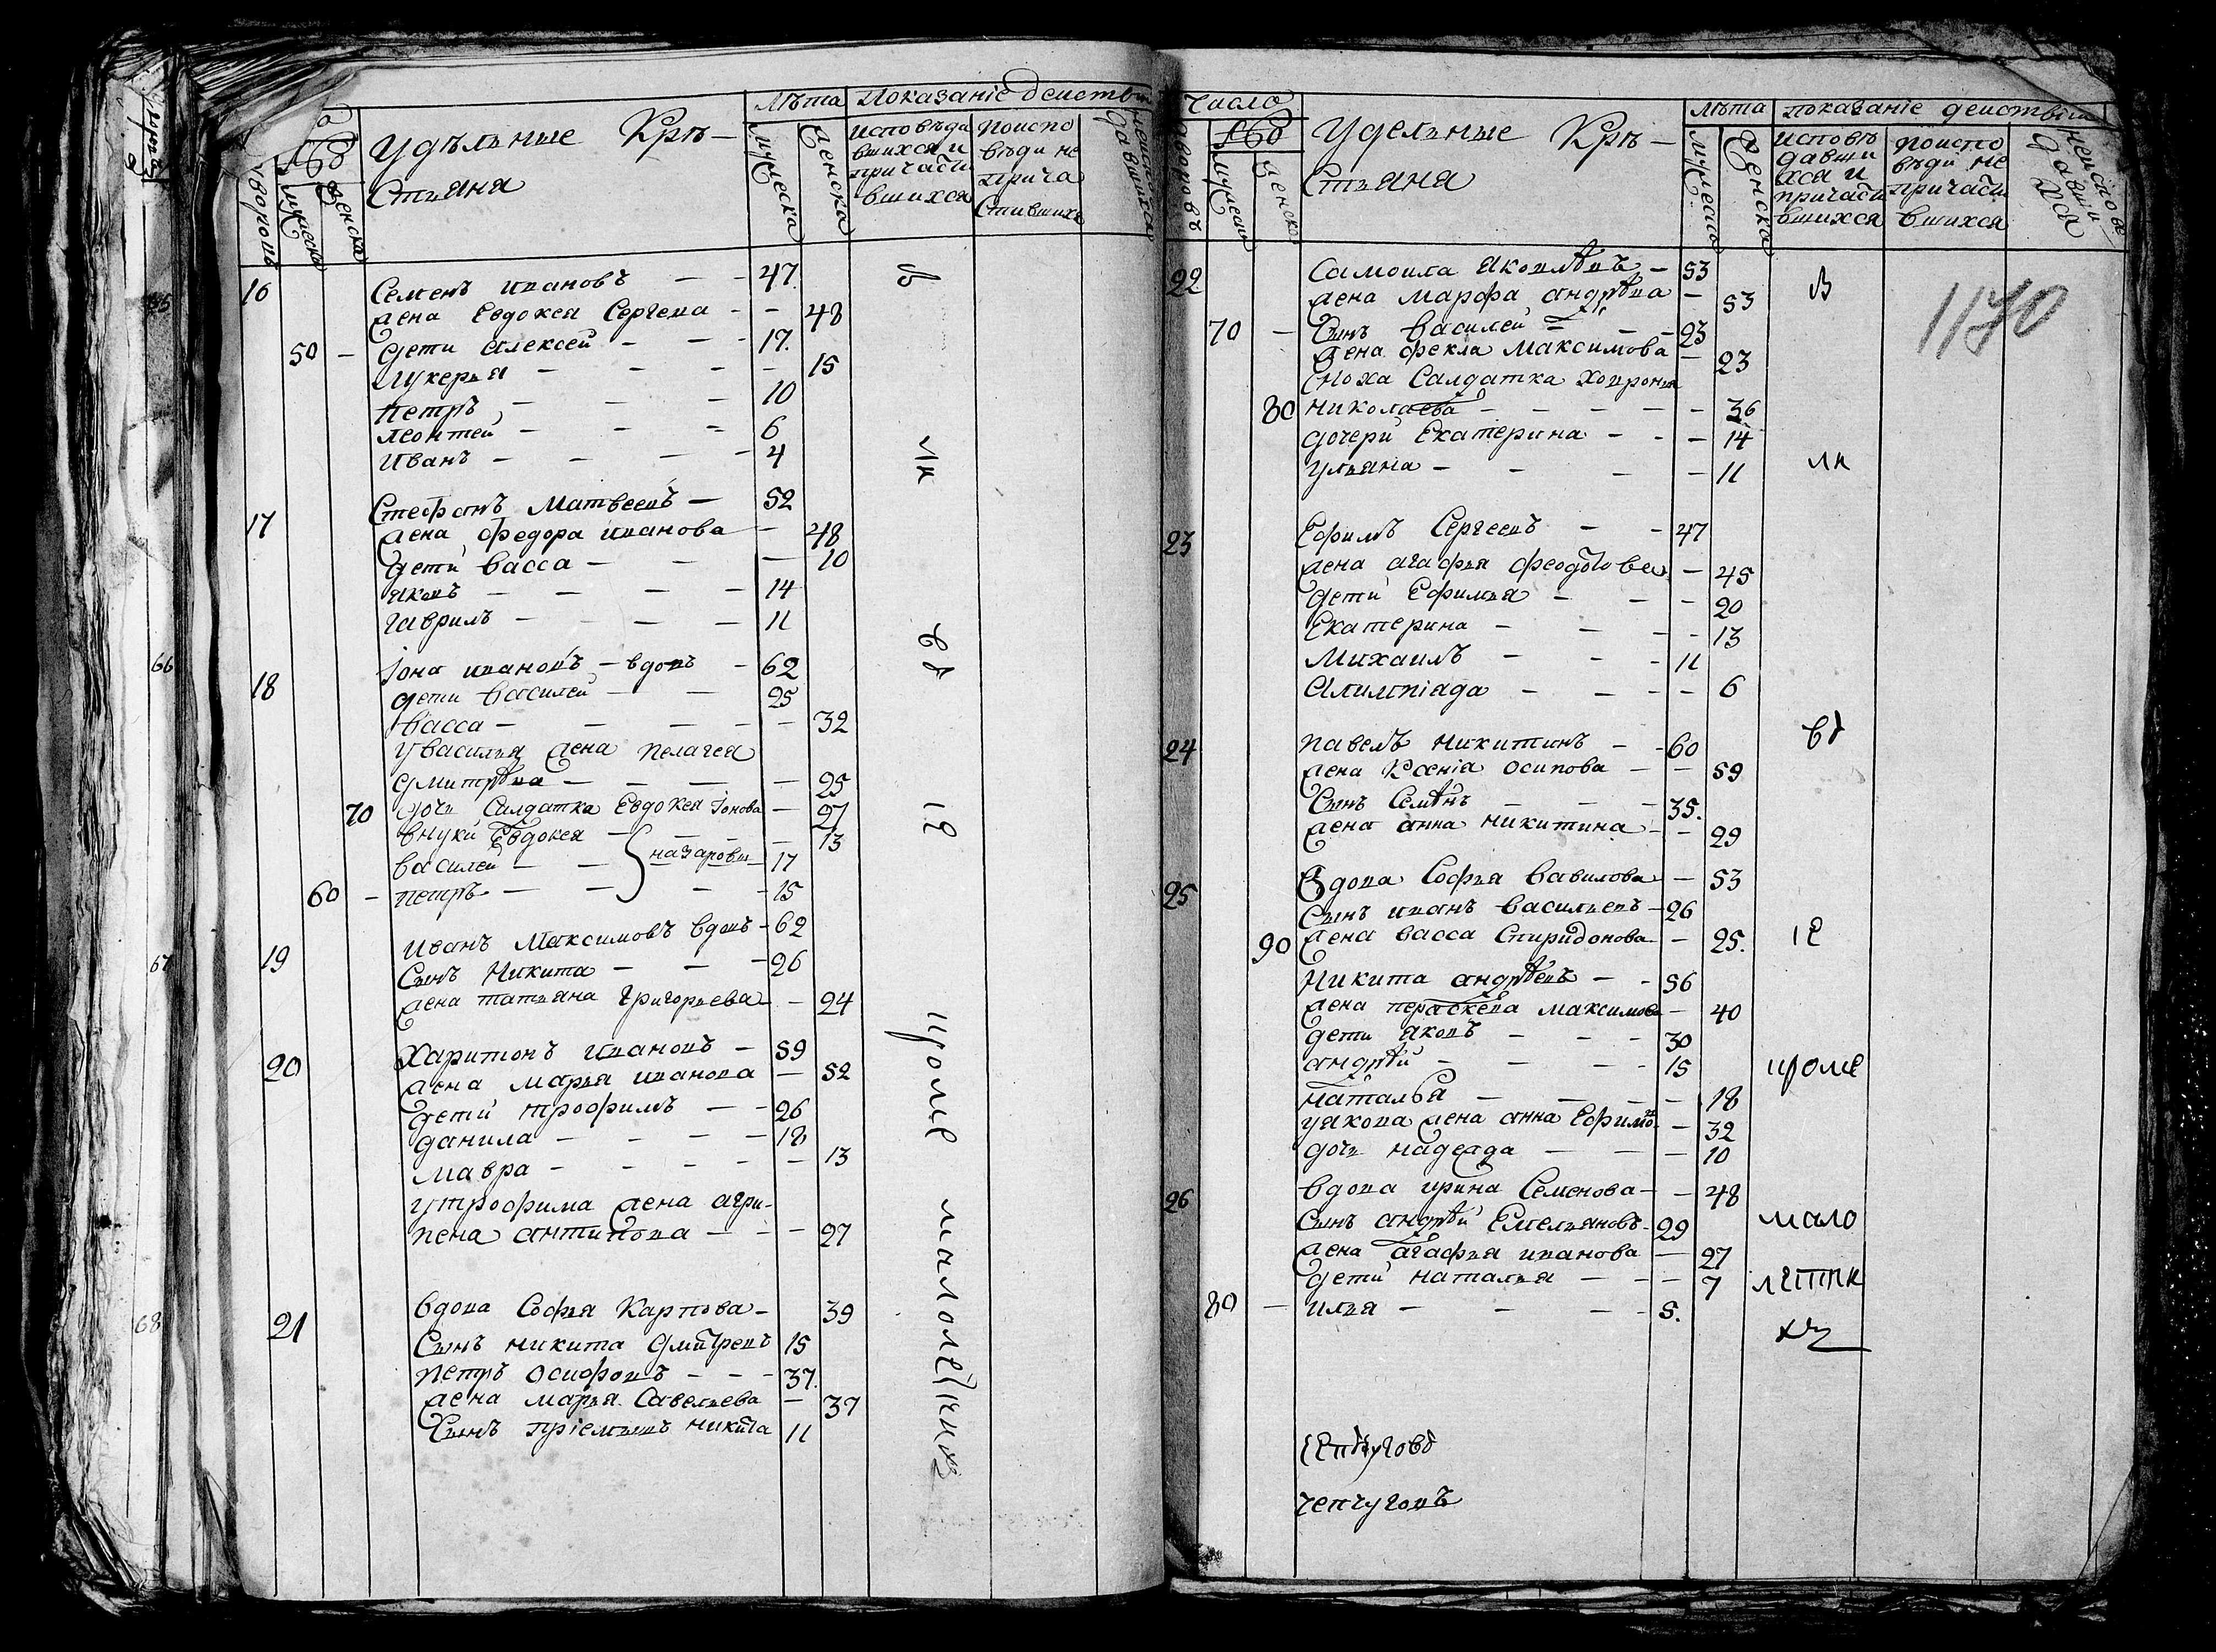 Удѣльные Крѣ-
стьяна
Лѣта Показанiе действ
мужеска
женска
исповеда
вшихся и
причасти
вшихся
поиспо
вѣди не
прича
стивших
16 Семенъ Ивановъ — 47
жена Евдокея Сергева — 48
50 — дети Алексей — 17
Лукерья — 15
Петръ — 10
Леонтей — 6
Иванъ — 4
17 Стефанъ Матвеевъ — 52
жена Федора Иванова — 48
дети Васса — 10
Яковъ — 14
Гаврилъ — 11
18 Iона Ивановъ — вдовъ — 62
дети Василей — 25
Васса — 32
у Василья жена Пелагея
Дмитрѣва — 25
70 дочь Салдатка Евдокея Iонова — 27
внуки Евдокея — 13
Василей — Назаровы 17
60 — Петръ — 15
19 Иванъ Максимовъ вдовъ — 62
Сынъ Никита — 26
жена Татьяна Григорьева — 24
20 Харитонъ Ивановъ — 59
жена Марья Иванова — 52
дети Трофимъ — 26
Данила — 18
Мавра — 13
у Трофима жена Агри-
пена Антипова — 27
21 вдова Софья Карпова — 39
Сынъ Никита Дмитревъ 15
Петръ Осифовъ — 37
жена Марья Савельева — 37
Сынъ прiемышъ Никита 11
в
лк
вд
iе
кроме
малолетних
число
дворовъ
мужеска
женска
Удельные Крѣ-
стьяна
Лѣта показанiе действiи
мужеско
женска
исповѣ
давши
хся и
причасти
вшихся
поиспо
вѣди не
причасти
вшихся
неиспов
давши
хся
1170
22 Самоила Яковлѣвъ — 53
жена Марфа Андрѣва — 53
70 — Сынъ Василей — 23
жена Фекла Максимова — 23
сноха Салдатка Хаврония
80 Николаева — 36
дочери Екатерина — 14
Ульяна — 11
23 Ефимъ Сергеевъ — 47
жена Агафья Феодотова — 45
дети Ефимья — 20
Екатерина — 13
Михаилъ — 11
Алимпiада — 6
24 Павелъ Никитинъ — 60
жена Ксенiа Осипова — 59
Сынъ Семѣнъ — 35.
жена Анна Никитина — 29
25 Вдова Софья Вавилова — 53
Сынъ Иванъ Васильевъ — 26
90 жена Васса Спиридонова — 25.
Никита Андрѣевъ — 56
жена Пераскева Максимова — 40
дети Яковъ — 30
Андрѣй — 15
Наталья — 18
у Якова жена Анна Ефимо — 32
дочь Надежда — 10
26 вдова Ирина Семенова — 48
Сынъ Андрѣй Емельяновъ 29
жена Агафья Иванова — 27
дети Наталья — 7
80 — Илья — 5.
в
лк
вд
iе
кроме
мало
летних
чепчуговъ